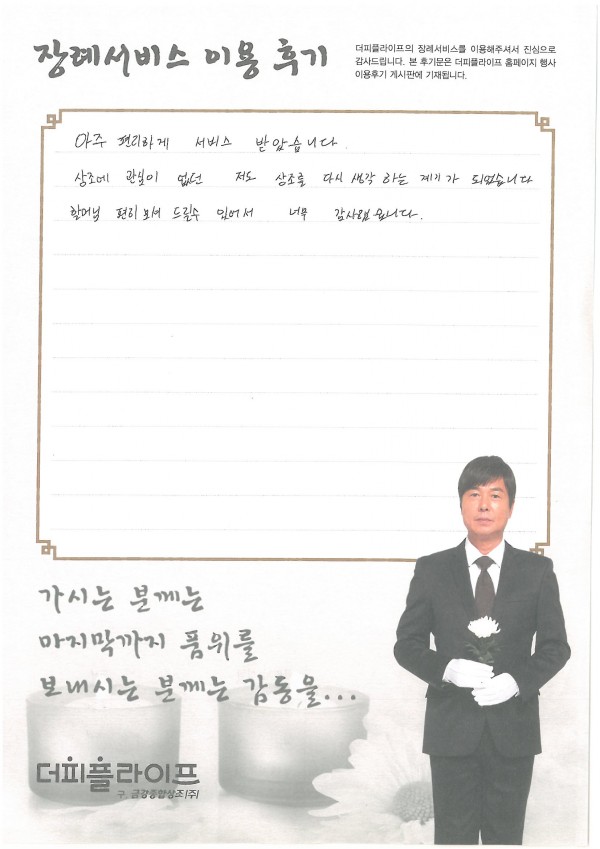 장례서비스 이용 후기
더피플라이프의 장례서비스를 이용해주셔서 진심으로
감사드립니다. 본 후기문은 더피플라이프 홈페이지 행사
이용후기 게시판에 기재됩니다.
아주 편리하게 서비스 받았습니다.
상조에 관심이 없던 저도 상조를 다시 생각 하는 계기가 되었습니다
할머님 편히 보셔 드릴수 있어서 너무 감사했읍니다.
가시는 분께는
마지막까지 품위를
보내시는 분께는 감동을...
더피플라이프
구. 금강종합상조(주)